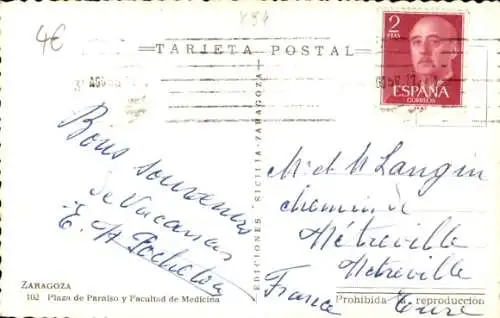 4€
TARJETA POSTAL
2
PTAS
ESPAÑA
CORREOS
Bons souvenirs
de Vacances
E.
EDICIONES SICILIA-ZARAGOZA
M. et M Langin
chemin de
Métreville
Métreville
France Eure
ZARAGOZA
102 Plaza de Paraiso y Facultad de Medicina
Prohibida la reproduccion